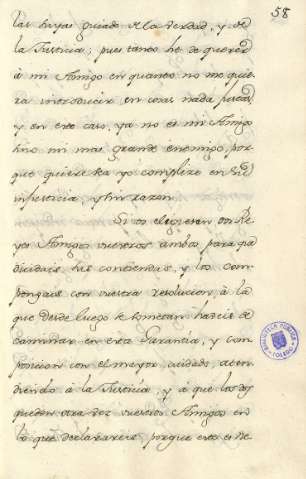 58
las huyas guiado de la Verdad, y de
la Justicia; pues tanto he de querer
à mi Amigo en quanto no me quie
ra introducir en cosas nada justas
y en este caso, ya no es mi Amigo
sino mi mas grande enemigo por
que quiere sea yo complize en su
injusticia, y sin razon.
Si os eligieren dos Re
yes Amigos vuestros ambos para q.e
dicidais sus contiendas, y los com
pongais con vuestra resolucion, à la
que desde luego se someten haveis de
caminar en esta Garantia, y com
posicion con el mayor cuidado aten
diendo à la Justicia, y à que los dos
queden otra vez vuestros Amigos en
lo que declarareis, porque esto es de
BIBLIOTECA PUBLICA
TOLEDO